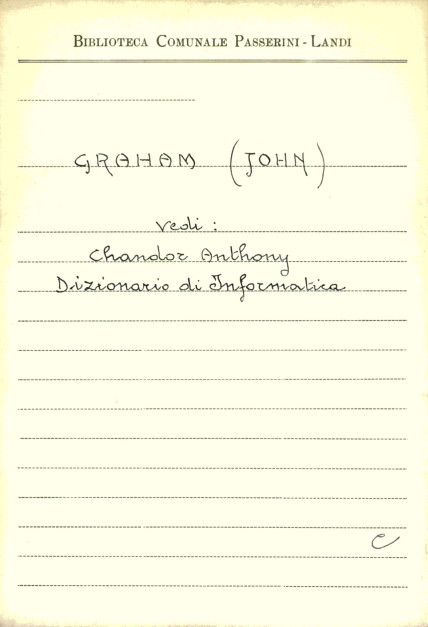 BIBLIOTECA COMUNALE PASSERINI - LANDI
GRAHAM (JOHN)
vedi :
Chandor Anthony
Dizionario di Informatica
C